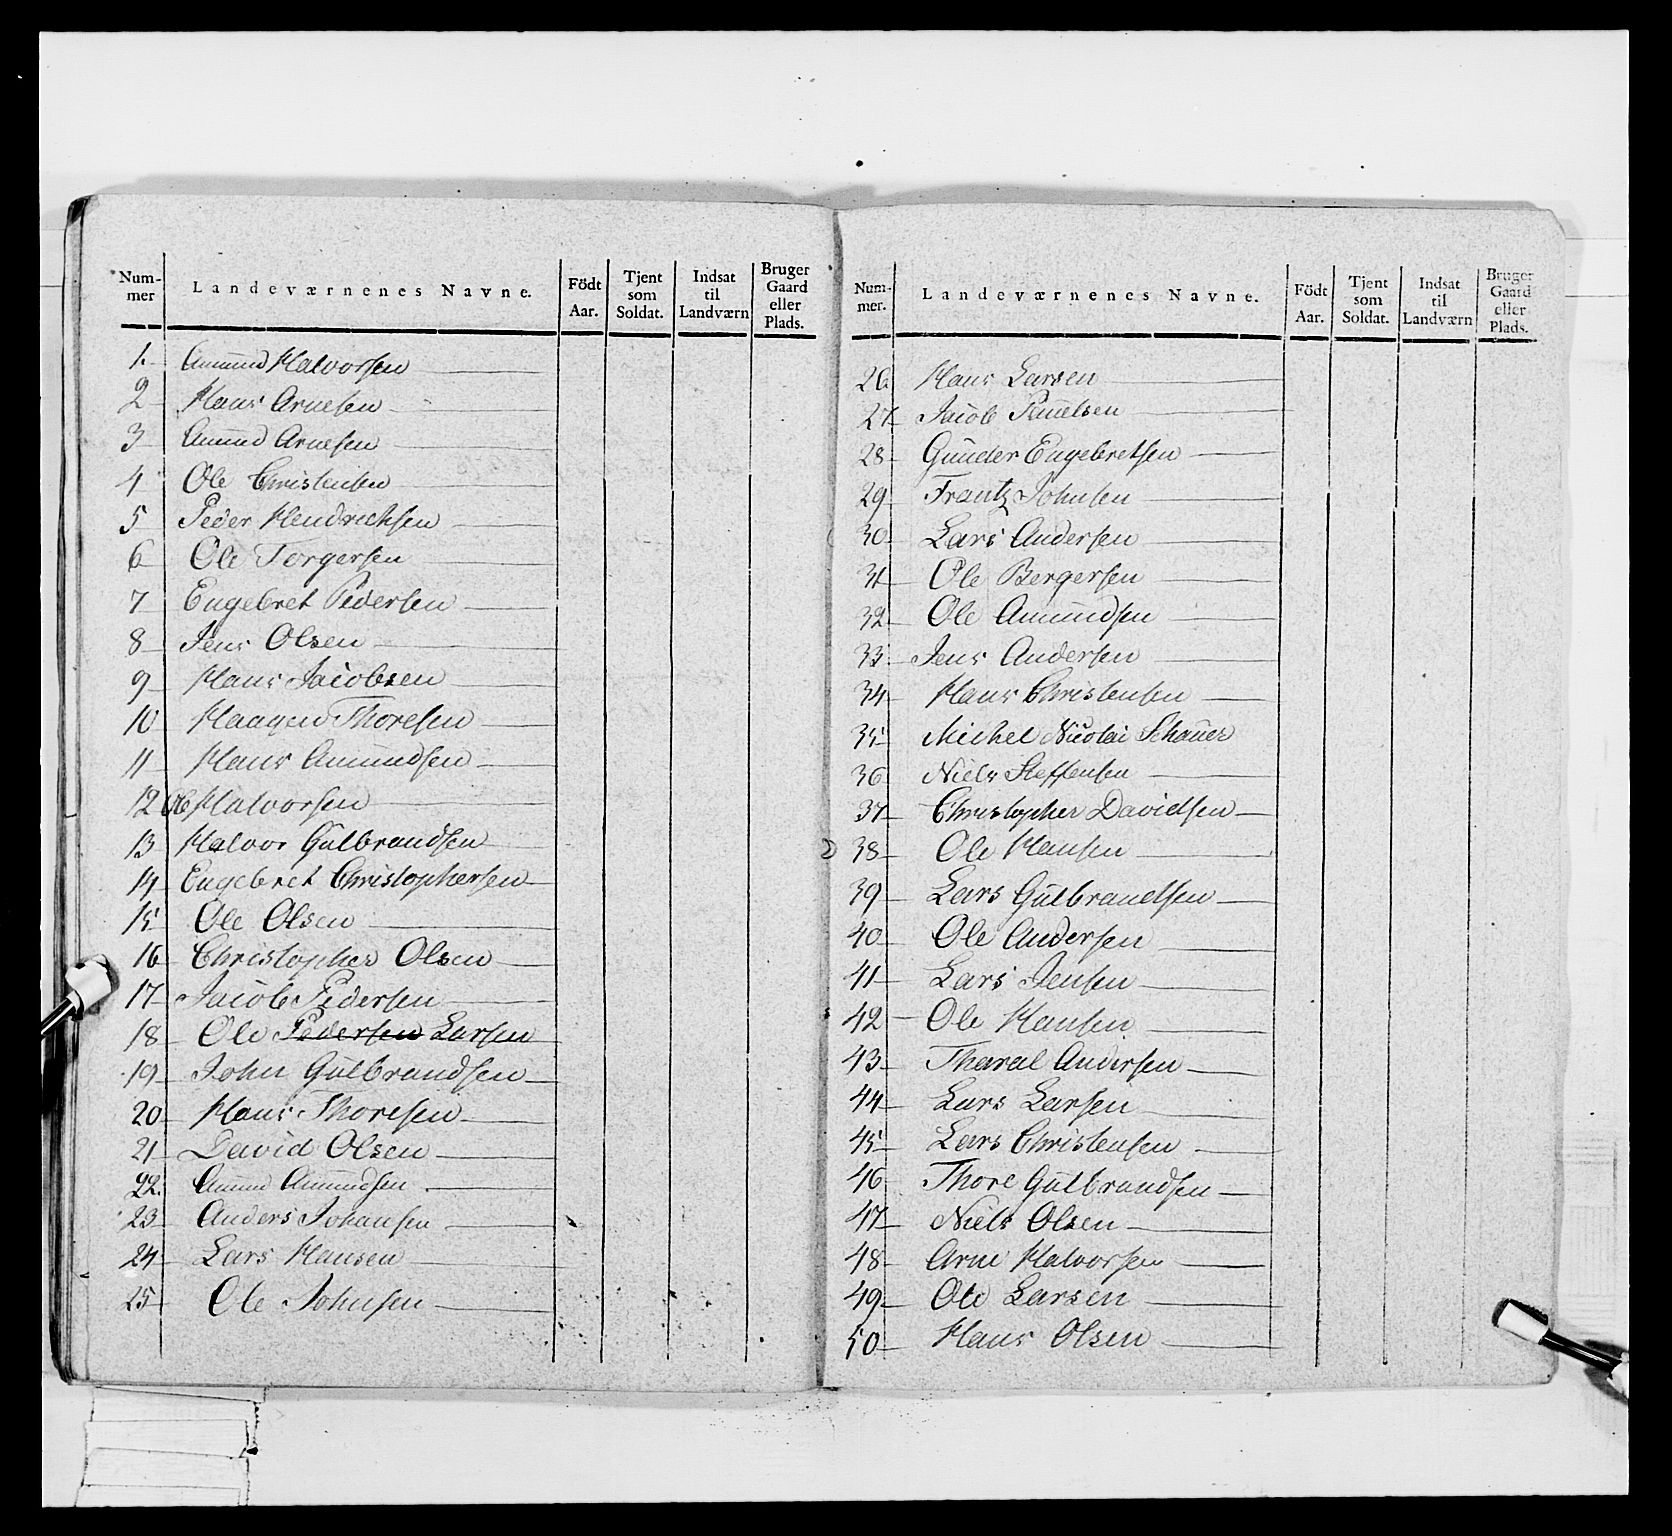 Num-
mer
Landeværnenes Navne.
Födt
Aar.
Tjent
som
Soldat.
Indsat
til
Landværn
Bruger
Gaard
eller
Plads.
1. Amund Halvorsen
2 Hans Arnesen
3 Amund Arnesen
4 Ole Christensen
5 Peder Hendrichsen
6 Ole Torgersen
7 Engebret Pedersen
8 Jens Olsen
9 Hans Jacobsen
10 Haagen Thoresen
11 Hans Amundsen
12 Ole Halvorsen
13 Halvor Gulbrandsen
14 Engebret Christophersen
15 Ole Olsen
16 Christopher Olsen
17 Jacob Pedersen
18 Ole Pedersen Larsen
19 John Gulbrandsen
20 Hans Thoresen
21 David Olsen
22. Amund Amundsen
23 Anders Johansen
24 Lars Hansen
25 Ole Johnsen
Num-
mer.
Landeværnenes Navne.
Födt
Aar.
Tjent
som
Soldat.
Indsat
til
Landværn
Bruger
Gaard
eller
Plads.
26 Hans Larsen
27 Jacob
28 Gunder Engebretsen
29 Frantz Johnsen
30 Lars Andersen
31 Ole Bergersen
32 Ole Amundsen
33 Jens Andersen
34 Hans Christensen
35 Michel Nicolai Schauer
36 Niels Steffensen
37 Christopher Davidsen
38 Ole Hansen
39 Lars Gulbrandsen
40 Ole Andersen
41 Lars Jensen
42 Ole Hansen
43 Tharal Andersen
44 Lars Larsen
45 Lars Christensen
46 Thore Gulbrandsen
47 Niels Olsen
48 Arne Halvorsen
49 Ole Larsen
50 Hans Olsen